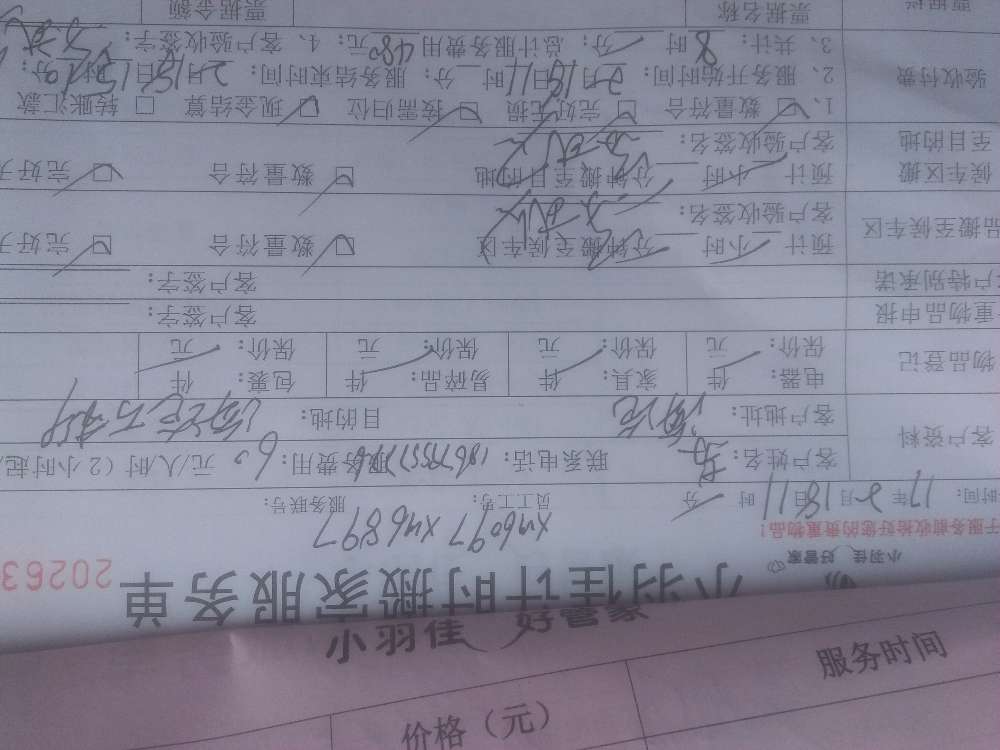 小羽佳 好管家
服务时间
价格（元）
小羽佳 好管家
小羽佳计时搬家服务单
20263
于服务前收拾好您的贵重物品！
时间：17年2月18日11时 分
员工工号： 服务联号：
xm6097 xm6897
客户资料
客户姓名： 联系电话： 服务费用：60元/人/时（2小时起
客户地址： 目的地：
物品登记
电器： 件 家具： 件 易碎品： 件 包裹： 件
保价： 元 保价： 元 保价： 元 保价： 元
重物品申报 客户签字：
户特别承诺 客户签字：
品搬至候车区
预计 小时 分钟搬至候车区 数量符合 完好无
客户验收签名：
候车区搬至目的地
预计 小时 分钟搬至目的地 数量符合 完好无
客户验收签名：
验收付款
1、 数量符合 完好无损 按需归位 现金结算 转账汇款
2、服务开始时间：2月18日11时 分； 服务结束时间：2月18日19时 分；
3、共计：8时 分；总计服务费用480元；4、客户验收签字：
票据名称 票据金额